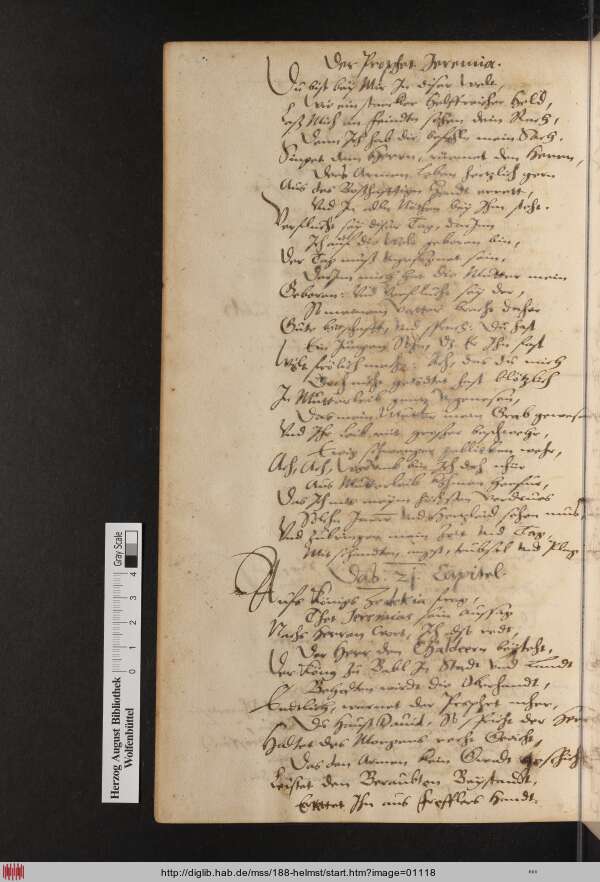 Der Prophet Jeremia.
Du bist bey Mir In diser welt,
Wie ein starcker Helffreicher Held,
Laß Mich an feinden sehen dein Rach,
Denn Ich hab dir befohln mein Sach.
Singet dem Herrn, rümet den Herren,
Der's Armen leben hertzlich gern
Aus der Boßhafftigen Handt errett,
Und In allen Nöthen bey Ihm steht.
Verflucht sey diser Tag, darInn
Ich auf die Welt geboren bin,
Der Tag muß ungesegnet sein,
DarInn mich hat die Mutter mein
Geboren: Und verflucht sey der,
So meinem Vatter bracht daher
Gute botschafft, und sprach: Du hast
Ein Jungen Sohn, Ihn fast
frölich macht: Ach, das du mich
Doch nicht getödtet hast plötzlich
In Mutterleib gantz
Das mein Mutter mein Grab gewesen
Und Ihr leib mit grosser beschwehr,
Ewig schwanger geblieben wehr,
Ach, Ach, Warumb bin Ich doch nhur
Aus Mutterleib kommen herfur,
Das Ich mit meinem
Solchen Jamer und Hertzleid sehen mus,
Und zubringen mein Zeit und Tag,
Mit schandten, angst, trübsal und Plag.
Das. 21. Capitel.
Aufs Königs Zedekia frag,
Thet Jeremias sein aussag
Nachs Herren Wort, Ich
Der Herr den Chaldeern beysteht,
Der König zu Babl In Stadt und Landt
Behalten wirdt die Oberhandt,
Endtlich, warnet der Prophet
Ds Hauß David, So spricht der Herr
Haltet des Morgens recht Gericht,
Das den Armen kein Gewalt geschicht
Leistet den Beraubten Beystandt,
Errettet Ihn aus frefflers Handt.
Herzog August Bibliothek
Wolfenbüttel
Gray Scale
0 1 2 3 4
http://diglib.hab.de/mss/188-helmst/start.htm?image=01118